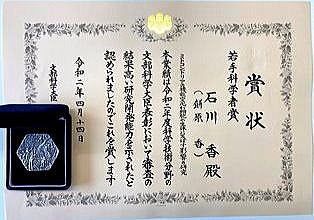 賞状
若手科学者賞
石川 香 殿
本業績は令和二年度科学技術分野の
文部科学大臣表彰において審査の
結果高い研究開発能力を示されたと
認められましたのでこれを賞します
令和二年四月十四日
文部科学大臣